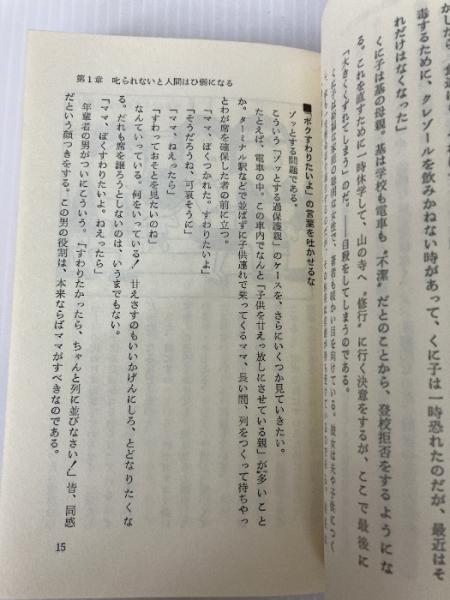 かしたら、
毒するために、クレゾールを飲みかねない時があって、くに子は一時恐れたのだが、最近はそ
れだけはなくなった」
くに子は基の母親。基は学校も電車も〝不潔〟だとのことから、登校拒否をするようにな
る。これを直すために一時休学して、山の寺へ〝修行〟に行く決意をするが、ここで最後に
「大きくくずれてしまう」のだ。――自殺をしてしまうのである。
第1章 叱られないと人間はひ弱になる
■「ボクすわりたいよ」の言葉を吐かせるな
ゾッとする問題である。
こういう「ゾッとする過保護親」のケースを、さらにいくつか見ていきたい。
たとえば、電車の中。この車内でなんと「子供を甘えっ放しにさせている親」が多いこと
か。ターミナル駅などで並ばずに子供連れで乗ってくるママ、長い間、列をつくって待ちやっ
とわが席を確保した者の前に立つ。
「ママ、ぼくつかれた。すわりたいよ」
「そうだろうね、可哀そうに」
「ママ、ねえったら」
「すわっておそとを見たいのね」
なんていっている。何をいっている! 甘えさすのもいいかげんにしろ、とどなりたくな
る。だれも席を譲ろうとしないのは、いうまでもない。
「ママ、ぼくすわりたいよ。ねえったら」
年輩者の男がついにこういう。「すわりたかったら、ちゃんと列に並びなさい!」皆、同感
だという顔つきをする。この男の役割は、本来ならばママがすべきなのである。
15